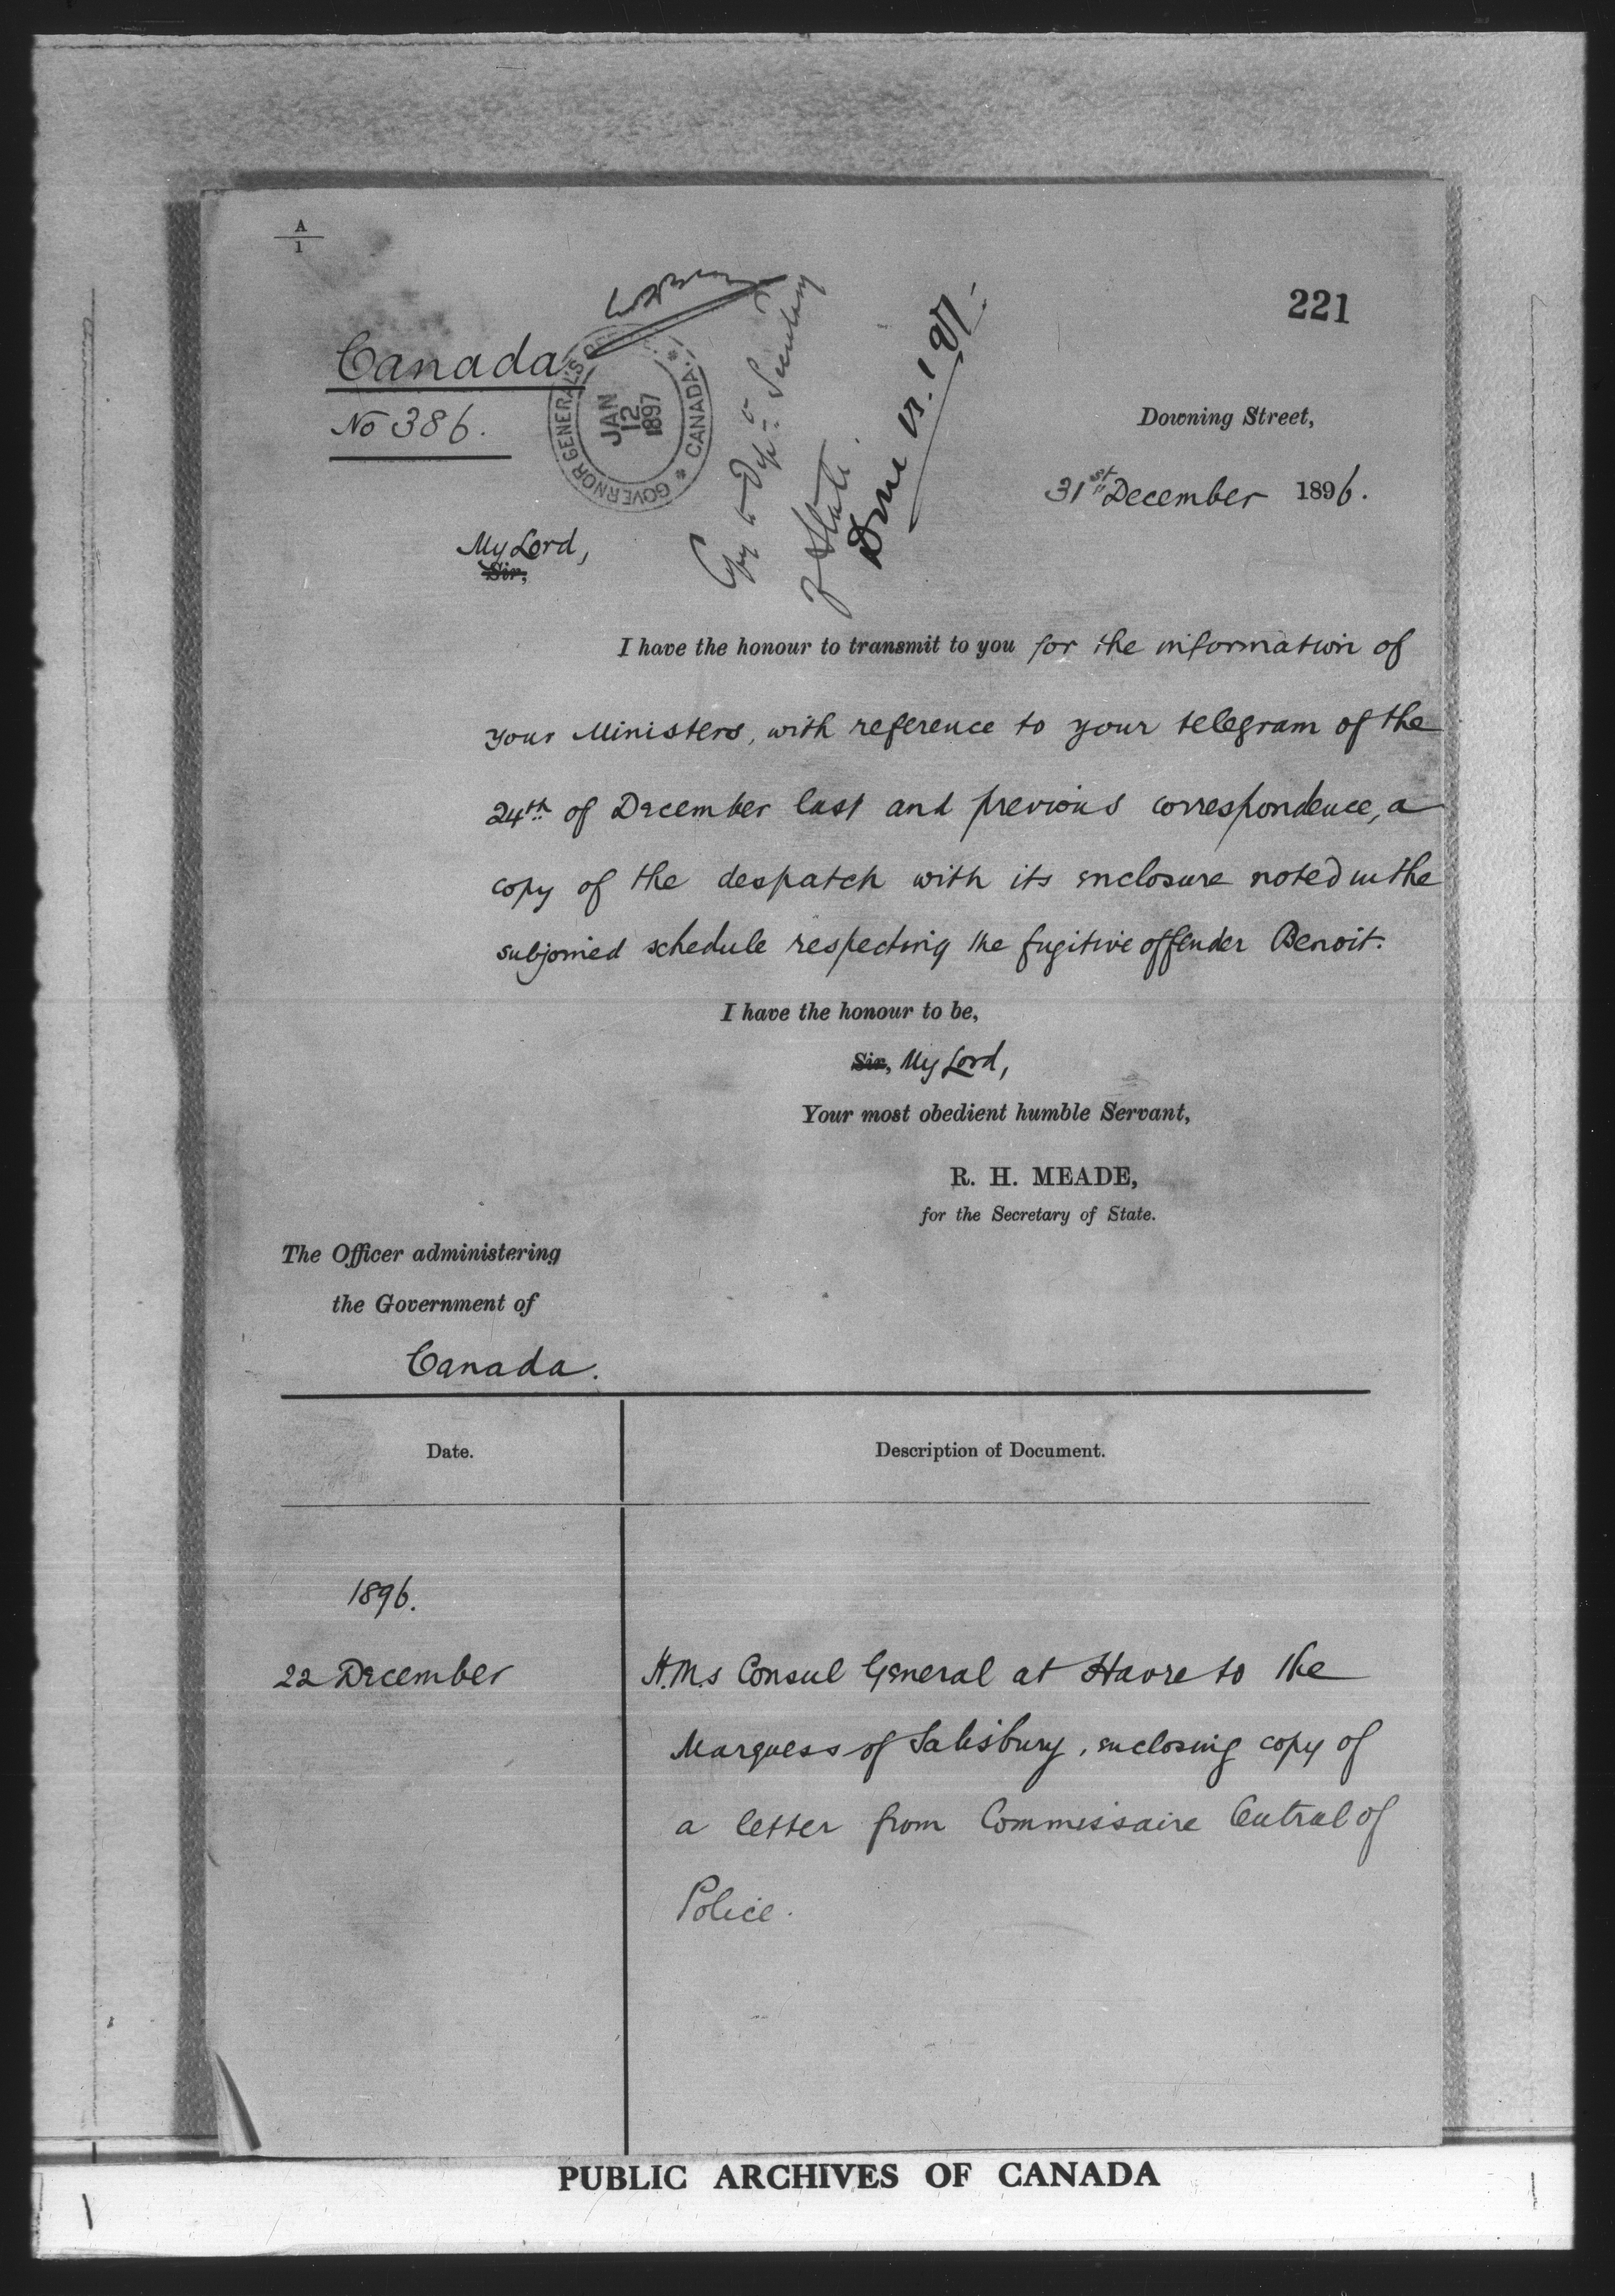 A
1
221
Canada
No 386.
GOVERNOR GENERAL'S
CANADA
JAN
12
1897
Copy to Dep: Secretary
of State.
Done
Downing Street,
31st December 1896.
My Lord,
Sir,
I have the honour to transmit to you for the information of
your Ministers, with reference to your telegram of the
24th of December last and previous correspondence, a
copy of the despatch with its enclosure noted in the
subjoined schedule respecting the fugitive offender Benoit.
I have the honour to be,
Sir, My Lord,
Your most obedient humble Servant,
R. H. MEADE,
for the Secretary of State.
The Officer administering
the Government of
Canada.
Date.
Description of Document.
1896.
22 December
H.M.s Consul General at Havre to the
Marquess of Salisbury, enclosing copy of
a letter from Commissaire Central of
Police.
PUBLIC ARCHIVES OF CANADA